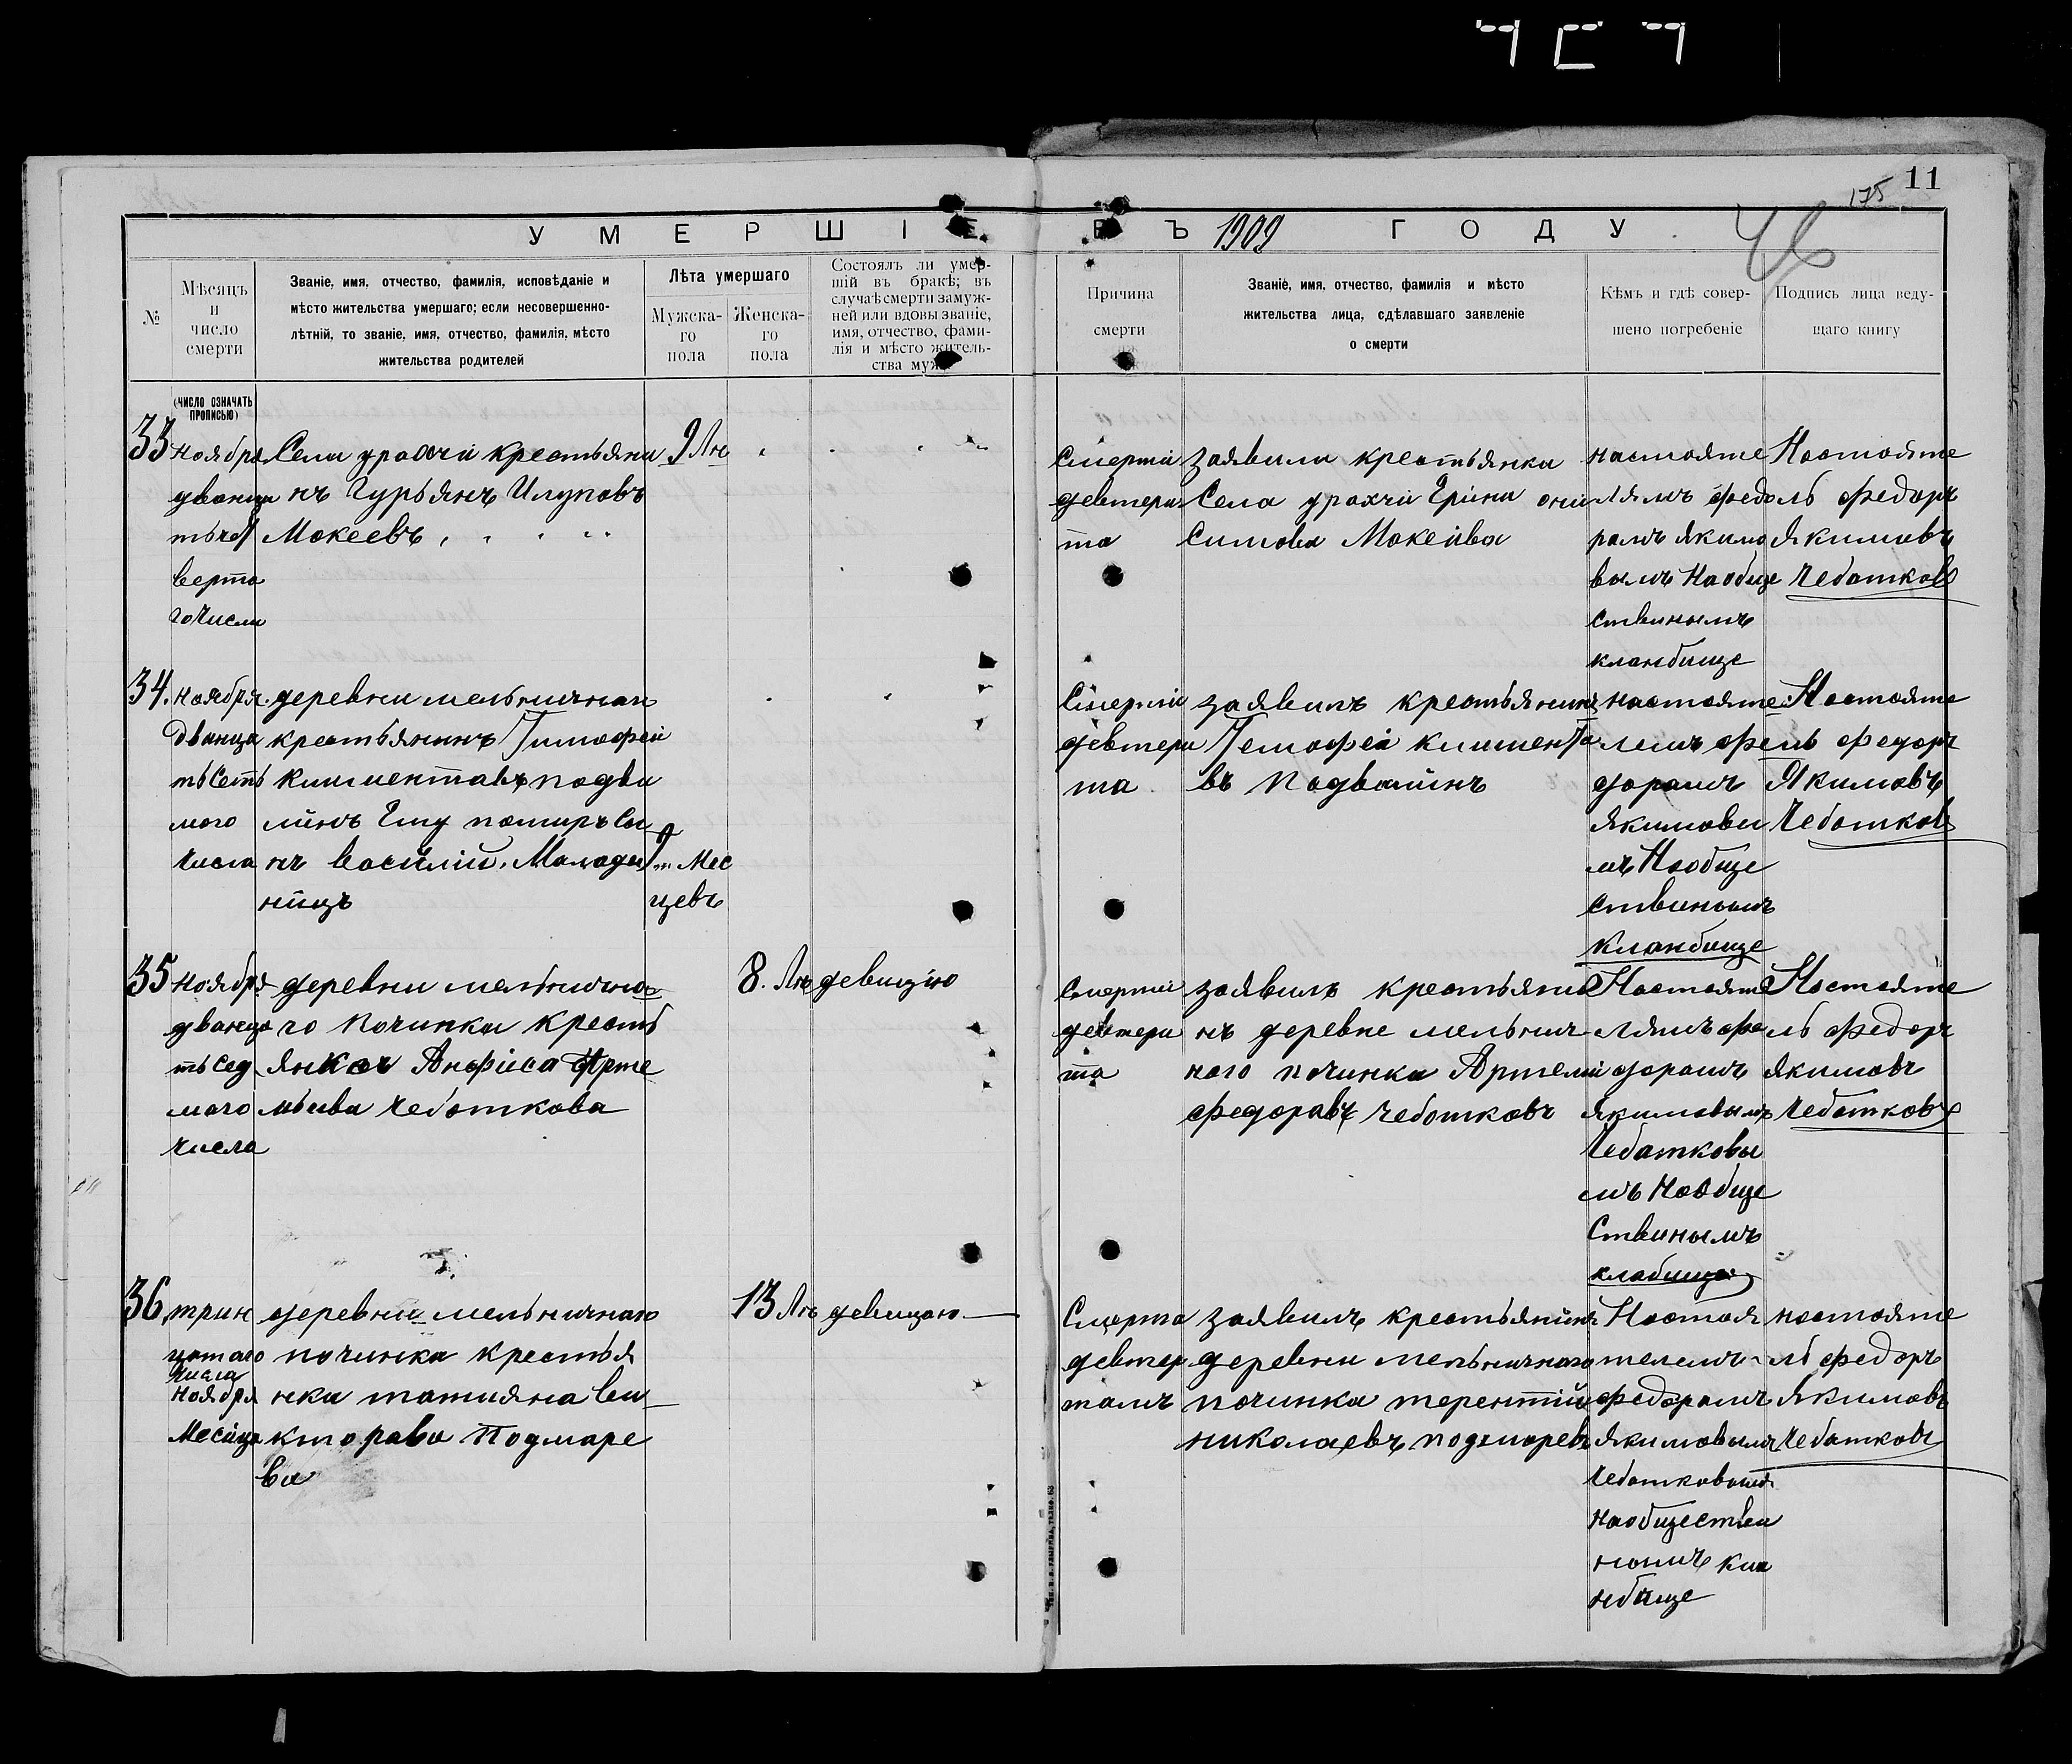 11
175
46
УМЕРШІЕ ВЪ 1909 ГОДУ.
№
Мѣсяцъ
и
число
смерти
Званіе, имя, отчество, фамилія, исповѣданіе и
мѣсто жительства умершаго; если несовершенно-
лѣтній, то званіе, имя, отчество, фамилія, мѣсто
жительства родителей
Лѣта умершаго
Мужска-
го
пола
Женска-
го
пола
Состоялъ ли умер-
шій въ бракѣ; въ
случаѣ смерти замуж-
ней или вдовы званіе,
имя, отчество, фами-
лія и мѣсто житель-
ства мужа
Причина
смерти
Званіе, имя, отчество, фамилія и мѣсто
жительства лица, сдѣлавшаго заявленіе
о смерти
Кѣмъ и гдѣ совер-
шено погребеніе
Подпись лица веду-
щаго книгу
(ЧИСЛО ОЗНАЧАТЬ
ПРОПИСЬЮ)
33
Ноября
дванца
тьчет
верта
го Числа
Села урахчи крестьяни
нъ Гурьянъ
Мокеевъ
9 Лѣ
Смертіи
девтери
та
заявила крестьянка
Села урахчи Еріна они
симова Мокеива
настояте
лямъ Федо
рамъ Якимо
вымъ Наобще
ствинымъ
кланбище
Настояте
ль Федоръ
Якимовъ
Чебатковъ
34.
Ноября.
дванца
тьсеть
мого
Числа
деревни мельничнаго
крестьянинъ Тимофей
Климентавъ подва
линъ Ему помиръ Сы
нъ Василій. Малоде
нтцъ
Мес
цевъ
Смертіи
девтери
та
заявилъ крестьянинъ
Темофей Климента
въ Подвалинъ
настояте
лемъ Фе
дорамъ
Якимовы
мъ Наобще
ствинымъ
Кланбище
Настояте
ль Федоръ
Якимовъ
Чебатковъ
35
Ноября
дванца
тьсед
маго
Числа
деревни мельнична
го Починка Кресть
янка Анфиса Арте
мьива Чеботкова
8. Лѣ
девицію
Смертіи
девтери
та
заявилъ крестьяни
нъ деревне мельнич
наго починка Артемій
Федоравъ Чеботковъ
Настояте
лямъ Фе
дорамъ
Якимовымъ
Чебатковы
мъ Наобще
Ствинымъ
клабище
Настояте
ль Федоръ
Якимовъ
Чебатковъ
36.
трин
цотаго
Числа
Ноября
Месица
деревни мельничнаго
починка крестья
нка татияна Ви
кторава Подмаре
ва
13 Лѣ
девицаю
Смерта
девтер
тамъ
заявилъ крестьянинъ
деревни мельничнаго
починка терентій
николаевъ подмаревъ
Настоя
телемъ
Федорамъ
Якимовымъ
Чебатковымъ
наобществи
номъ кла
нбище
настояте
ль Федоръ
Якимовъ
Чебатковъ